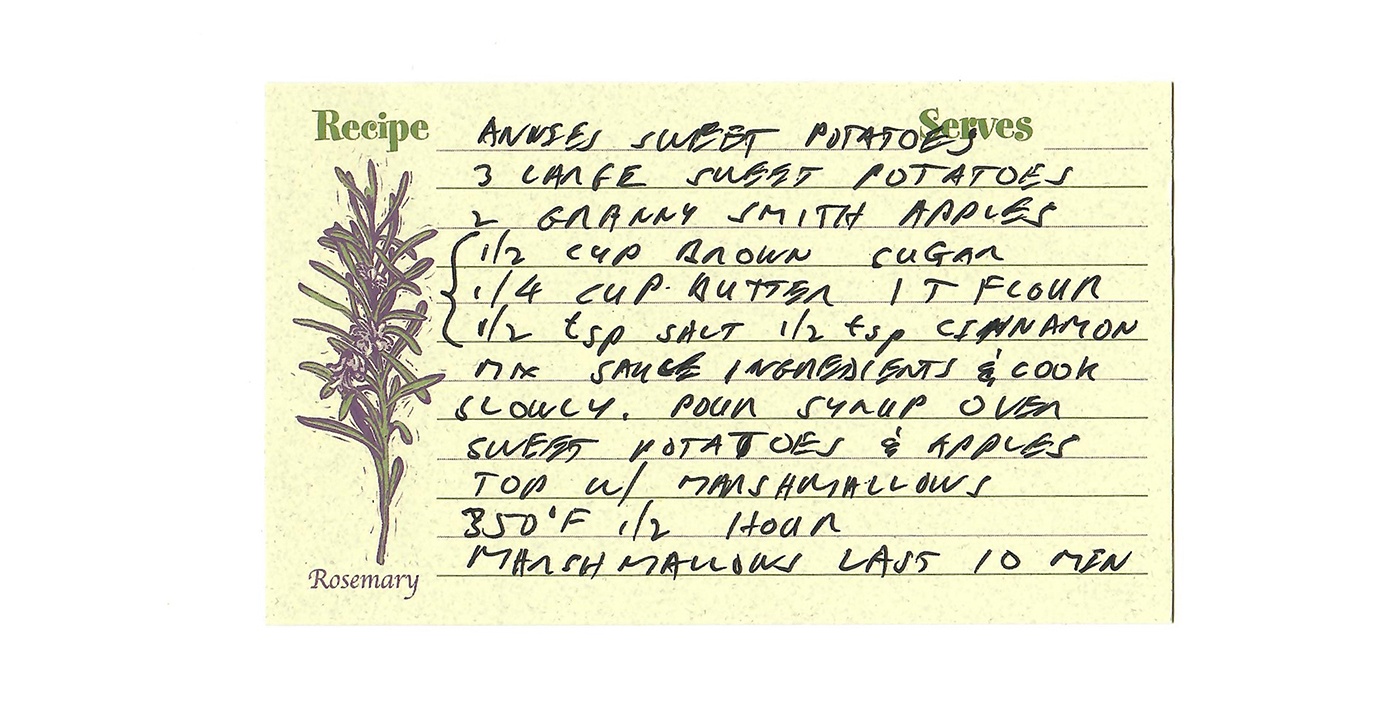 Recipe ANNIES SWEET POTATOES Serves
3 LARGE SWEET POTATOES
2 GRANNY SMITH APPLES
1/2 CUP BROWN SUGAR
1/4 CUP BUTTER 1 T FLOUR
1/2 tsp SALT 1/2 tsp CINNAMON
MIX SAUCE INGREDIENTS & COOK
SLOWLY. POUR SYRUP OVER
SWEET POTATOES & APPLES
TOP W/ MARSHMALLOWS
350°F 1/2 HOUR
MARSHMALLOWS LAST 10 MIN
Rosemary